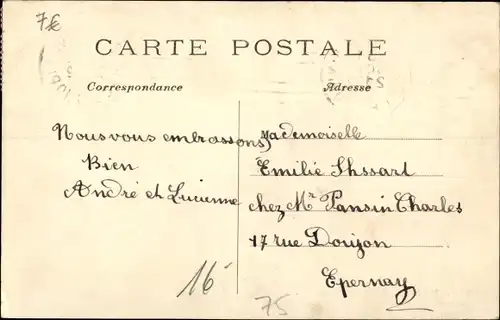 7€
CARTE POSTALE
Correspondance
Adresse
Nous vous embrassons
Bien
André et Lucienne
Mademoiselle
Emilie
chez Mr Pansin Charles
17 rue
Epernay
16
75